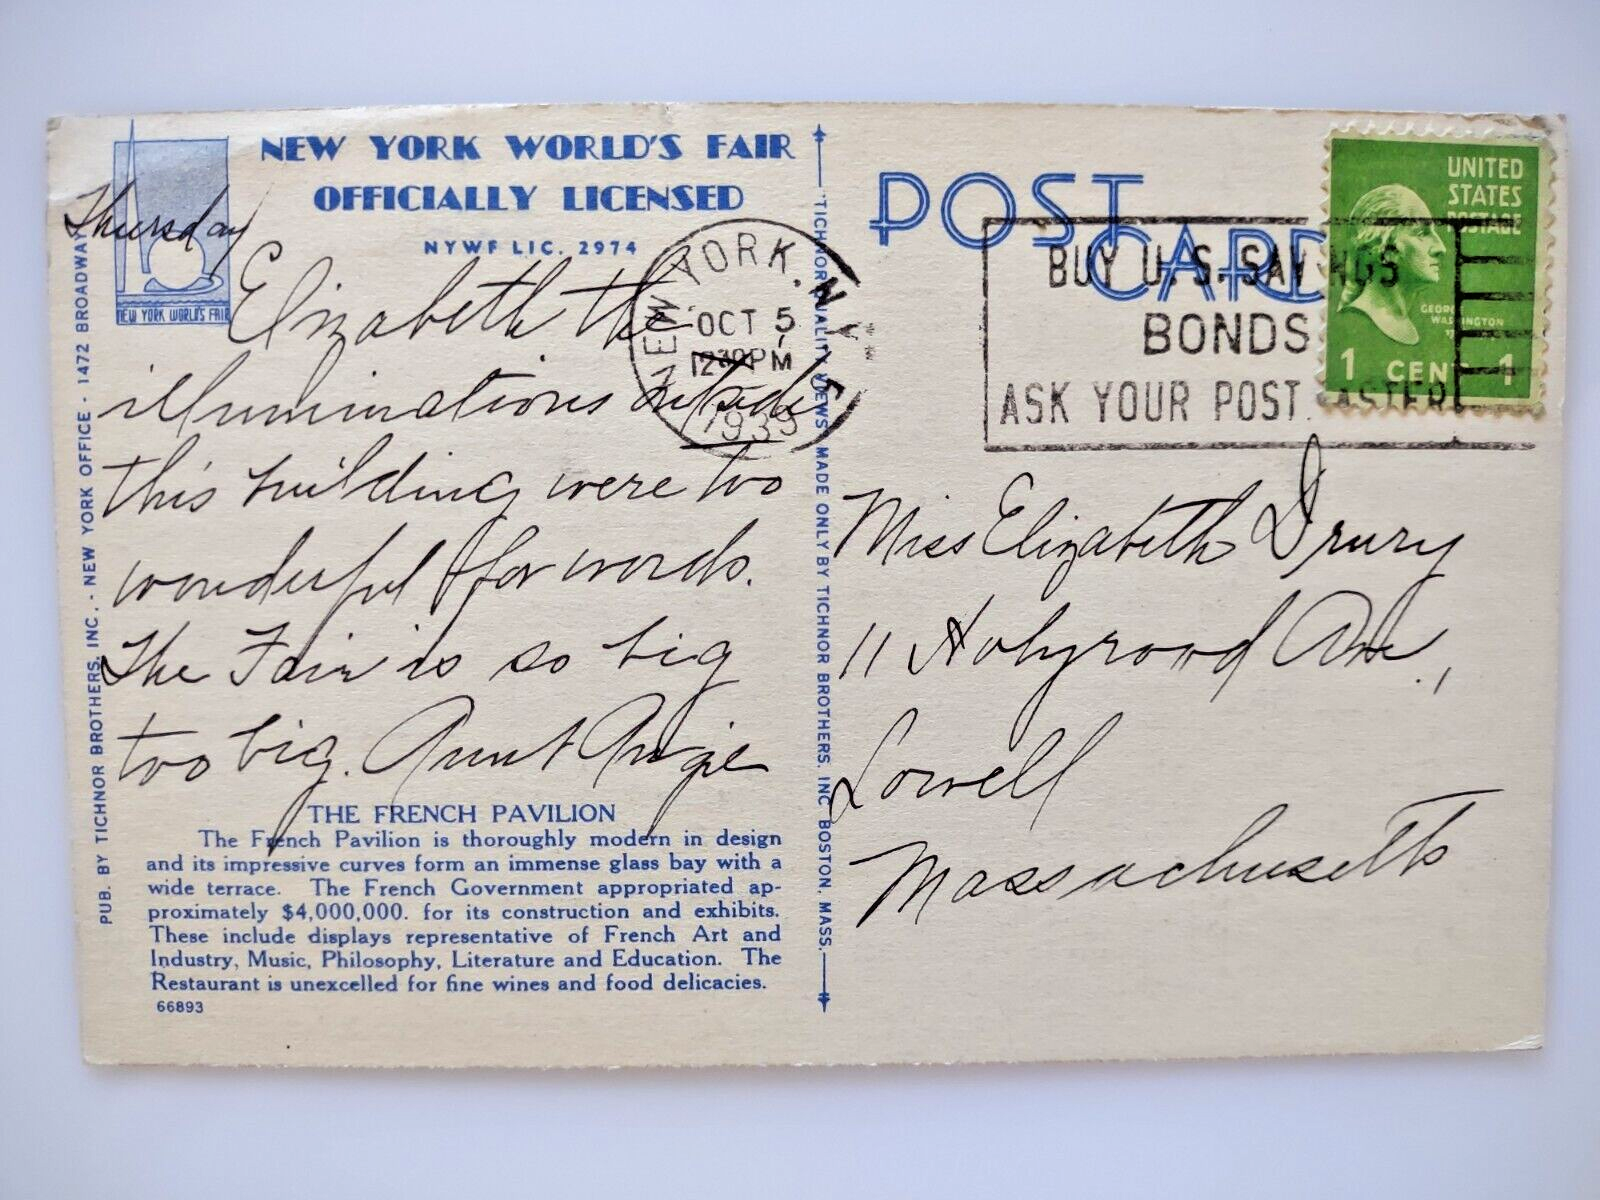 NEW YORK WORLD'S FAIR
OFFICIALLY LICENSED
NYWF LIC. 2974
NEW YORK WORLD'S FAIR
Thursday
Elizabeth the
illuminations outside
this building were too
wonderful for words.
The Fair is so big
too big. Aunt Angie
THE FRENCH PAVILION
The French Pavilion is thoroughly modern in design
and its impressive curves form an immense glass bay with a
wide terrace. The French Government appropriated ap-
proximately $4,000,000. for its construction and exhibits.
These include displays representative of French Art and
Industry, Music, Philosophy, Literature and Education. The
Restaurant is unexcelled for fine wines and food delicacies.
66893
PUB. BY TICHNOR BROTHERS, INC. - NEW YORK OFFICE - 1472 BROADWAY
"TICHNOR QUALITY VIEWS" MADE ONLY BY TICHNOR BROTHERS, INC BOSTON, MASS.
NEW YORK, N.Y.
OCT 5
12 30 PM
1939
POST
CARD
BUY U.S. SAVINGS
BONDS
ASK YOUR POSTMASTER
UNITED
STATES
POSTAGE
GEORGE
WASHINGTON
1 CENT 1
Miss Elizabeth Drury
11 Holyrood Ave.,
Lowell
Massachusetts